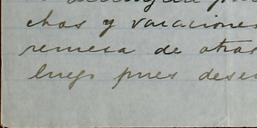 chas y vacaciones
remesa de otras
luego pues dese